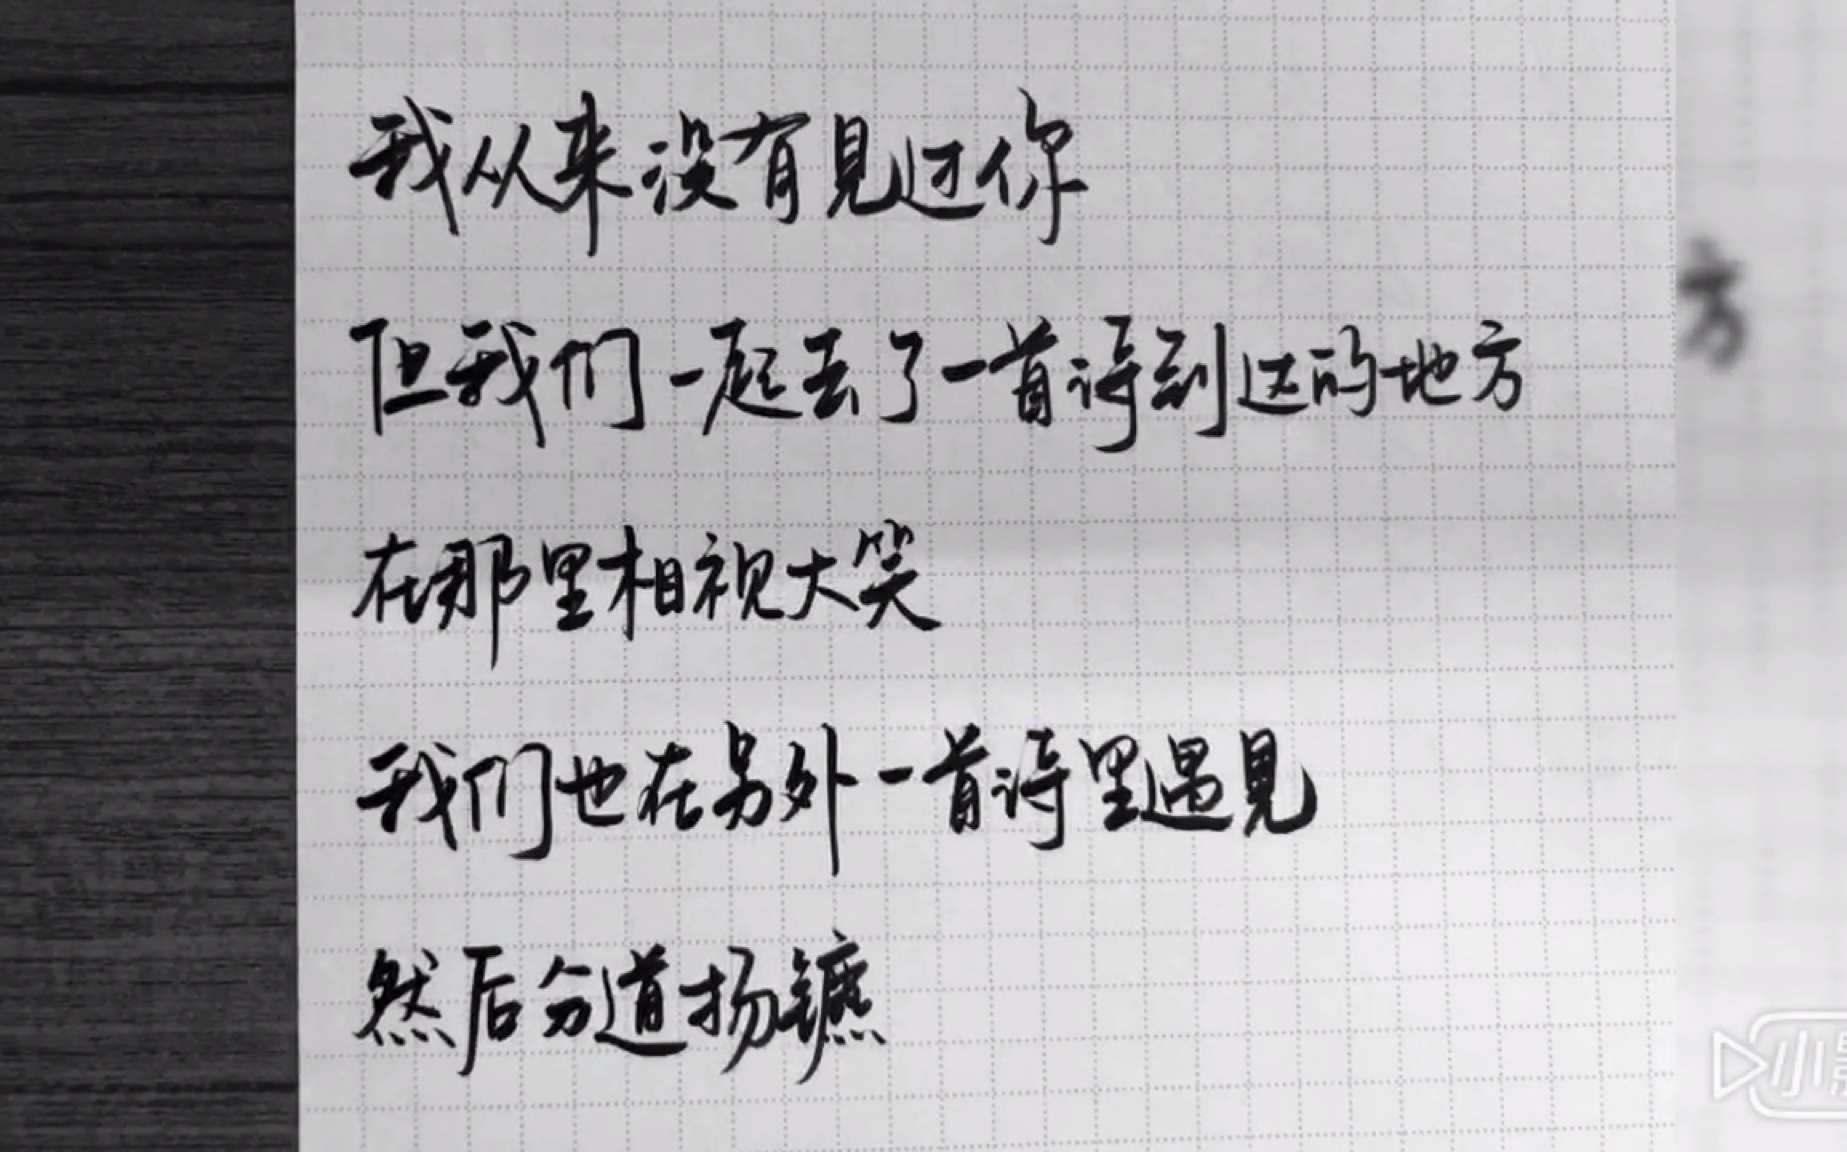 我从来没有見过你
但我们一起去了一首诗到达的地方
方
在那里相视大笑
我们也在另外一首诗里遇見
然后分道扬镳
小影